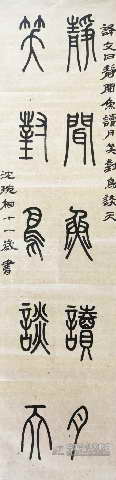 譯文曰靜聞魚讀月笑對鳥談天
靜聞魚讀月
笑對鳥談天
沈琬桐十一歲書